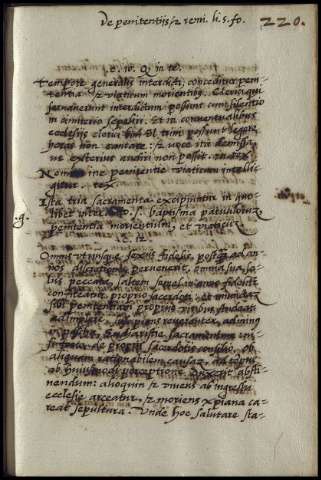 De penitentiis, & remi. li. 5. fo. 220.
c. 10. Q in te.
Tempore generalis interdicti, conceditur peni-
tentia, & viaticum morientibus. Clerici qui
servaverunt interdictum possunt cum silentio
in cimiterio sepeliri. Et in conventualibus
ecclesiis clerici bini & trini possunt legere
horas non cantare: & voce ita demissa
ne exterius audiri non possit.
Nomine penitentie viaticum intelli-
gitur.
Ista tria sacramenta excipiuntur in quo
libet interdicto s. baptisma parvulorum
penitentia morientium, et viaticum
.g.
c. 12
Omnis utriusque sexus fidelis, postquam ad an-
nos discretionis pervenerit, omnia sua so-
lus peccata, saltem semel in anno fideliter
confiteatur, proprio sacerdoti, et iniunctam
sibi penitentiam propriis viribus studeat
adimplere, suscipiens reverenter, ad minus
in pascha, Eucharistie sacramentum ni-
si forte de proprii sacerdotis consilio, ob
aliquam rationabilem causam, ad tempus
ab huiusmodi perceptione duxerit absti-
nendum: alioquin & vivens ab ingressu
ecclesie arceatur, & moriens xpiana ca-
reat sepultura. Unde hoc salutare sta-